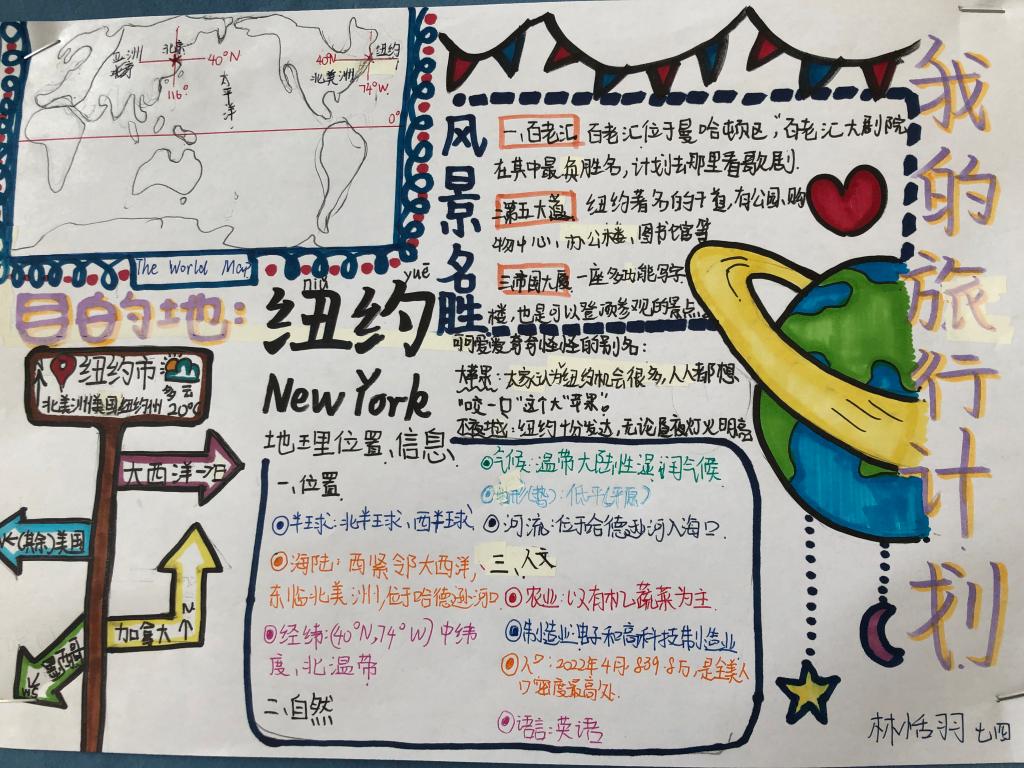 我的旅行计划
亚洲
北京
北京
40°N
116°
太平洋
40°N
北美洲
纽约
74°W
0°
The World Map
风景名胜
一、百老汇 百老汇位于曼哈顿区，百老汇大剧院
在其中最负胜名，计划去那里看歌剧.
二第五大道 纽约著名的街道，有公园、购
物中心，办公楼，图书馆等
三帝国大厦 一座多功能写字
楼，也是可以登顶参观的景点。
目的地：
niǔ yuē
纽约
New York
可爱爱奇奇怪怪的别名：
大苹果：大家认为纽约机会很多，人人都想
"咬一口"这个大"苹果"。
不夜城：纽约十分发达，无论昼夜灯火明亮
纽约市
多云
北美洲美国纽约州 20℃
大西洋→
W←(其余)美国
加拿大
N
地理位置、信息
一、位置
半球：北半球、西半球
海陆：西紧邻大西洋，
东临北美洲，位于哈德逊河口
经纬：(40°N,74°W) 中纬
度、北温带
二、自然
气候：温带大陆性湿润气候
地形(势)：低平(平原)
河流：位于哈德逊河入海口
三、人文
农业：以有机蔬菜为主.
制造业：电子和高科技制造业
人口：2022年4月：839.8万，是全美人
口密度最高处.
语言：英语
林恬羽 七四